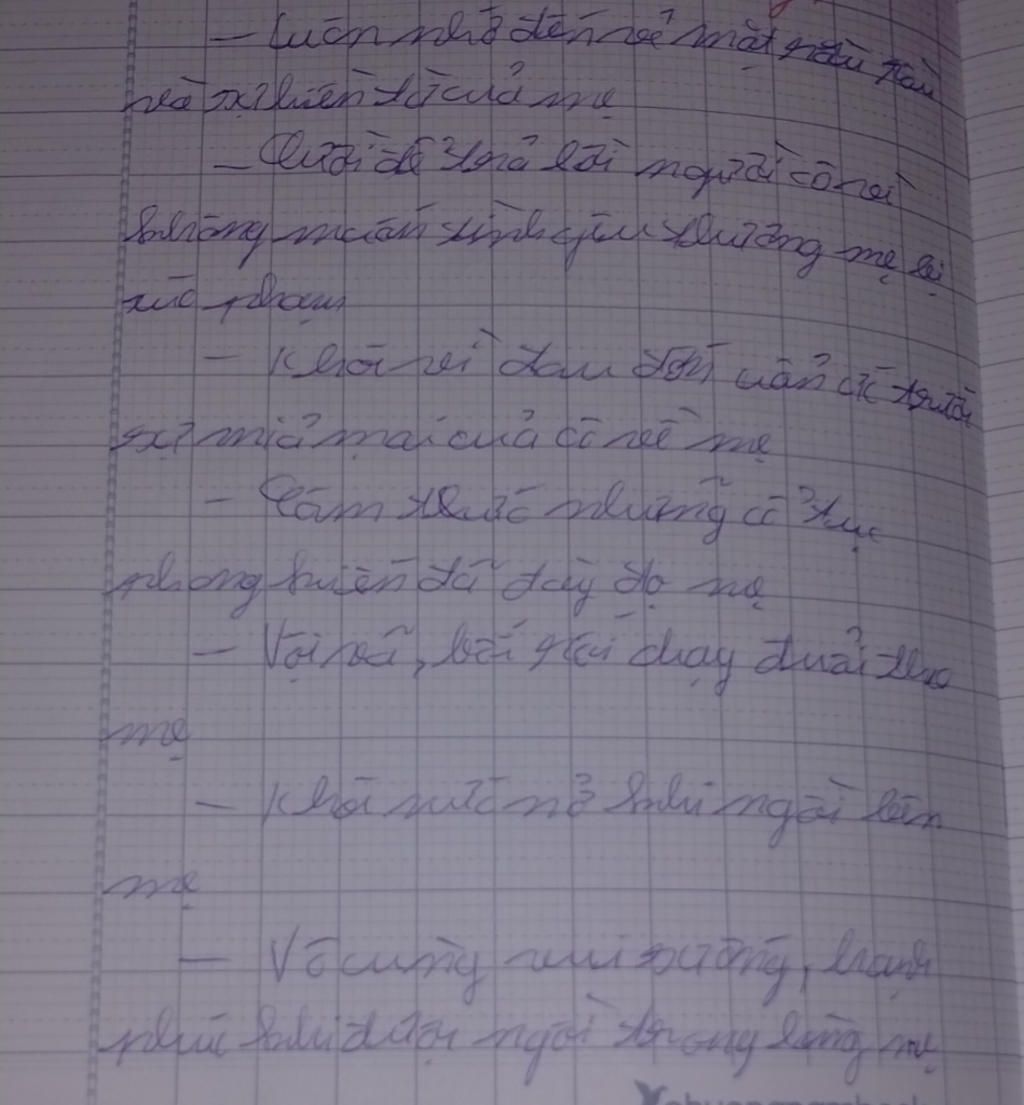 - Luôn nhớ đến vẻ mặt rầu rầu
và sự hiền từ của mẹ
- Cười để trả lời người cô vì
không muốn tình yêu thương mẹ bị
xúc phạm
- Khóc vì đau đớn uất ức trước
sự mỉa mai của cô về mẹ
- Căm tức những cổ tục
phong kiến đã đày đọ mẹ
- Vội vã, bối rối chạy đuổi theo
mẹ
- Khóc nức nở khi ngồi bên
mẹ
- Vô cùng vui sướng, hạnh
phúc khi được ngồi trong lòng mẹ